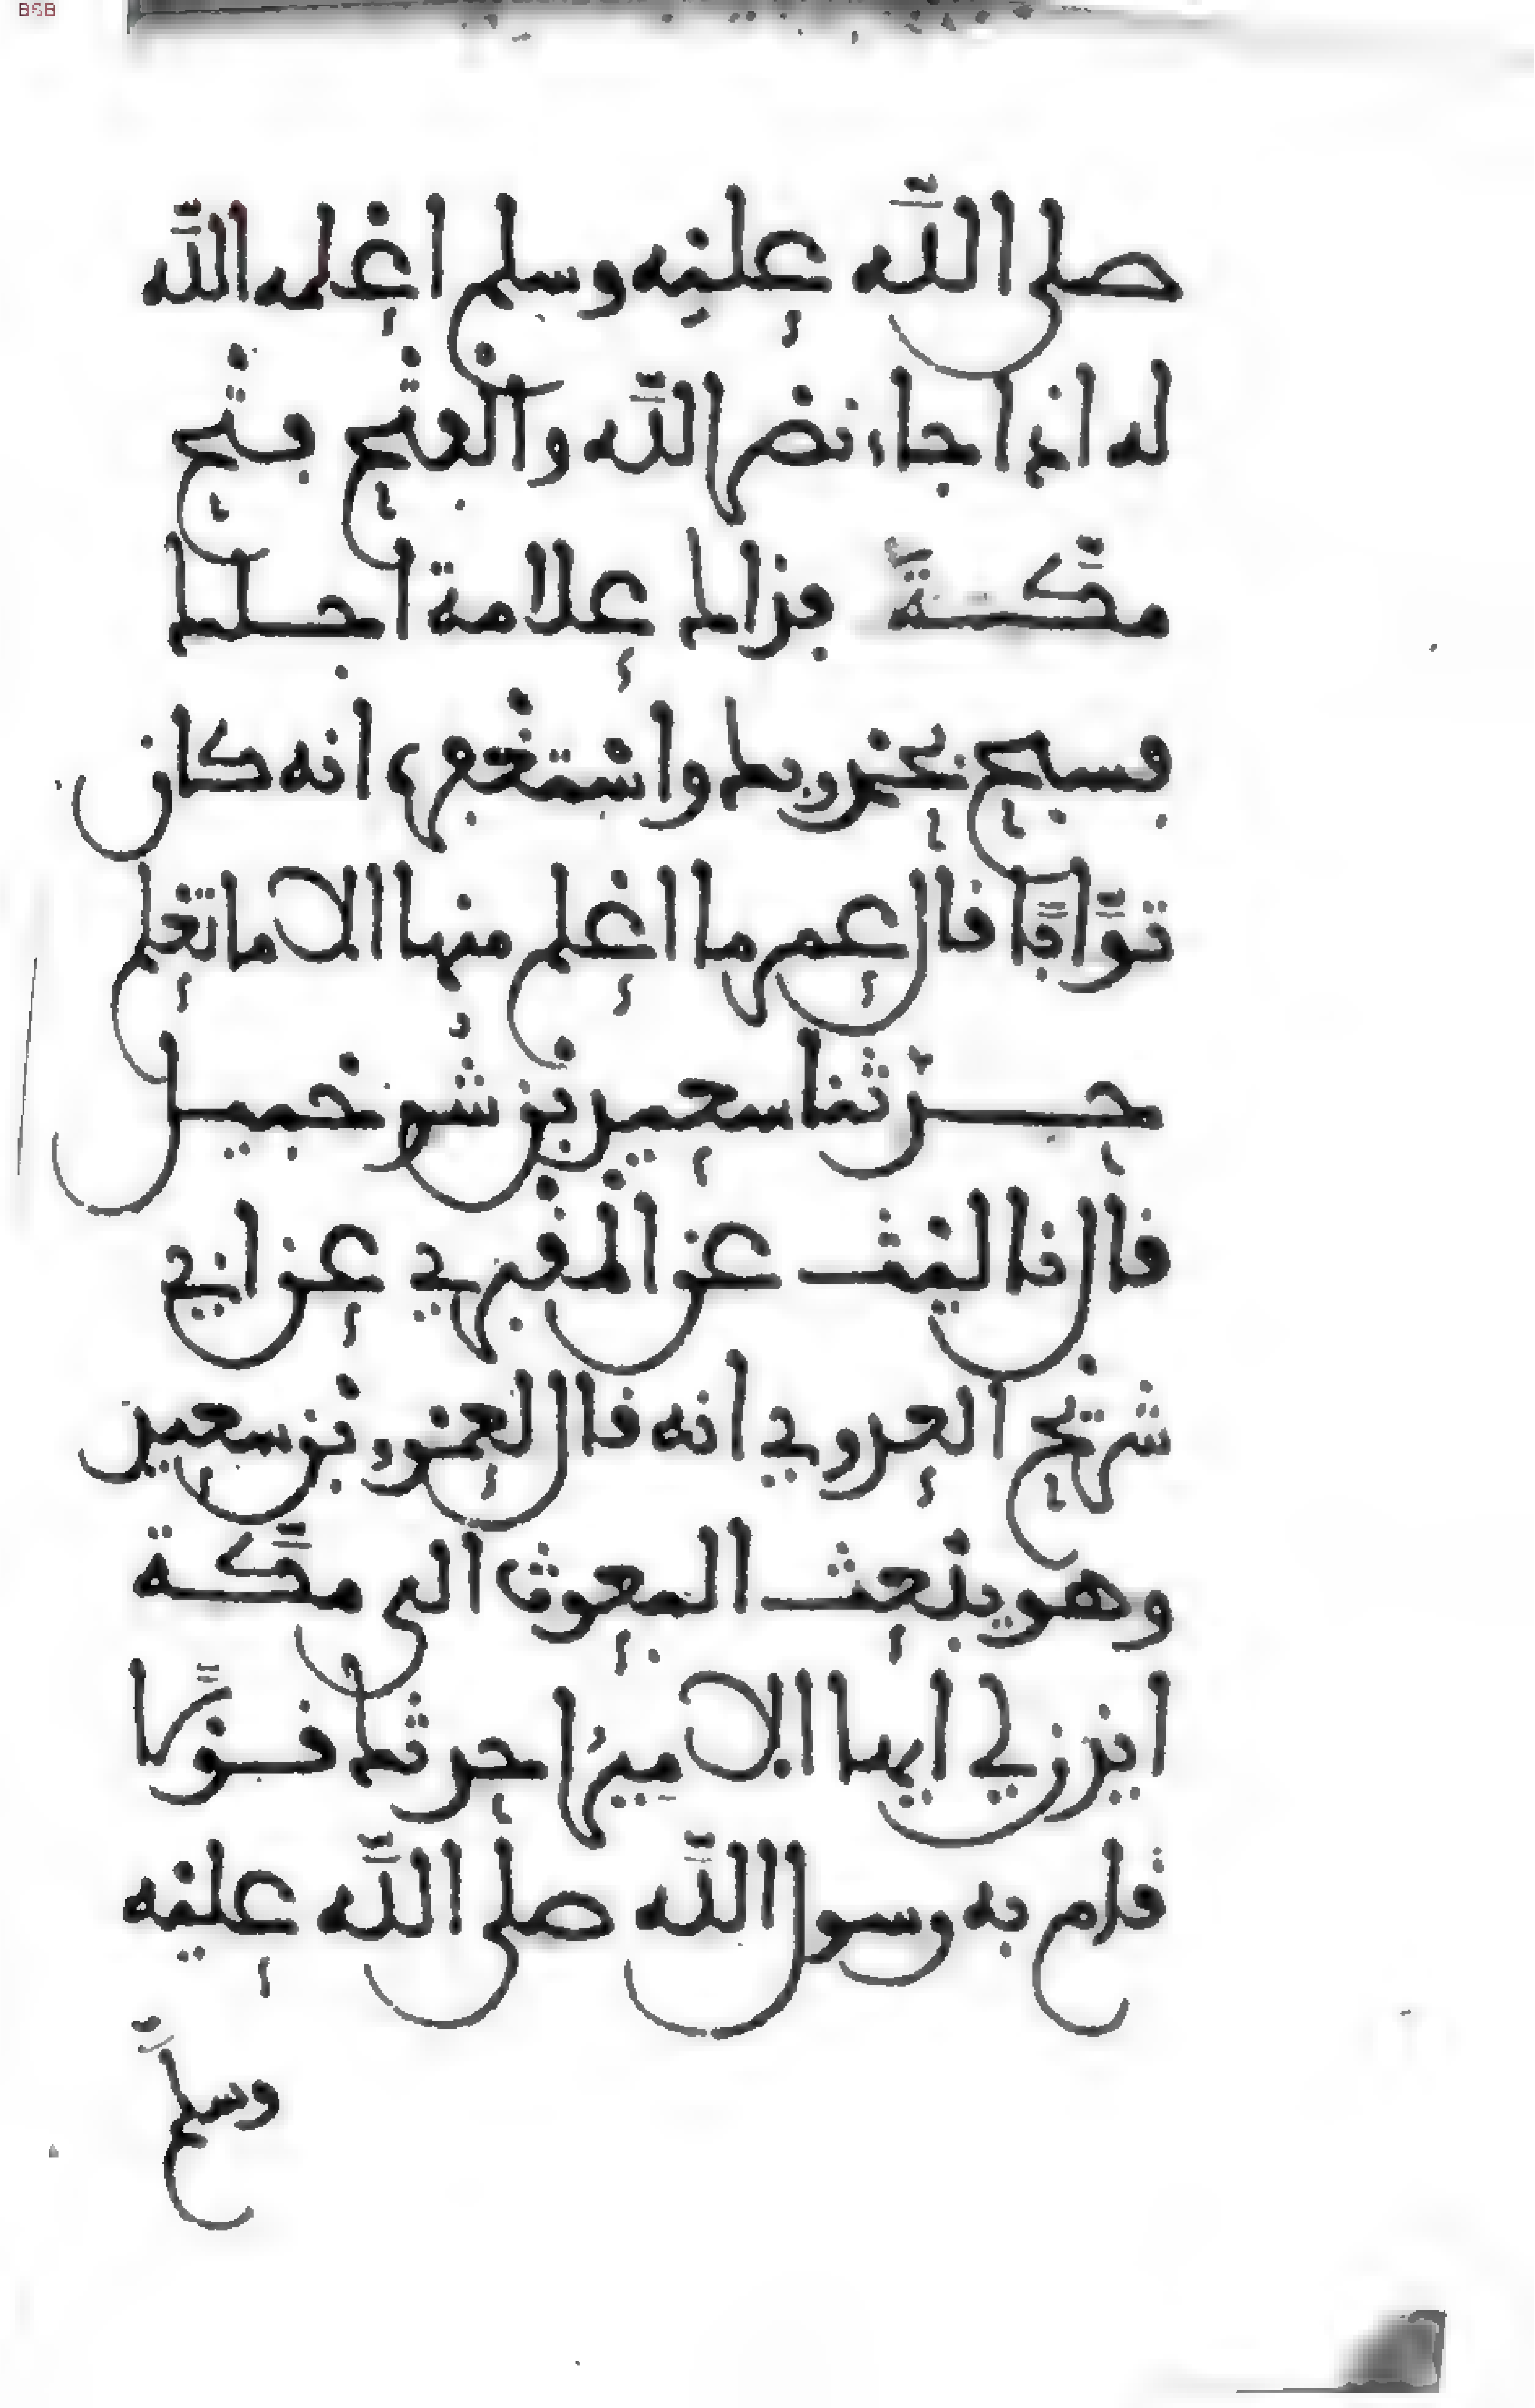 BSB
صلى الله عليه وسلم اعلمه الله
له اذا جاء نصر الله والفتح فتح
مكة فذاك علامة اجلك
فسبح بحمد ربك واستغفره انه كان
توابا قال عمر ما اعلم منها الا ما تعلم
حدثنا سعيد بن شرحبيل
قال نا الليث عن المقبري عن ابي
شريح العدوي انه قال لعمرو بن سعيد
وهو يبعث البعوث الى مكة
ايذن لي ايها الامير احدثك قولا
قام به رسول الله صلى الله عليه
وسلم